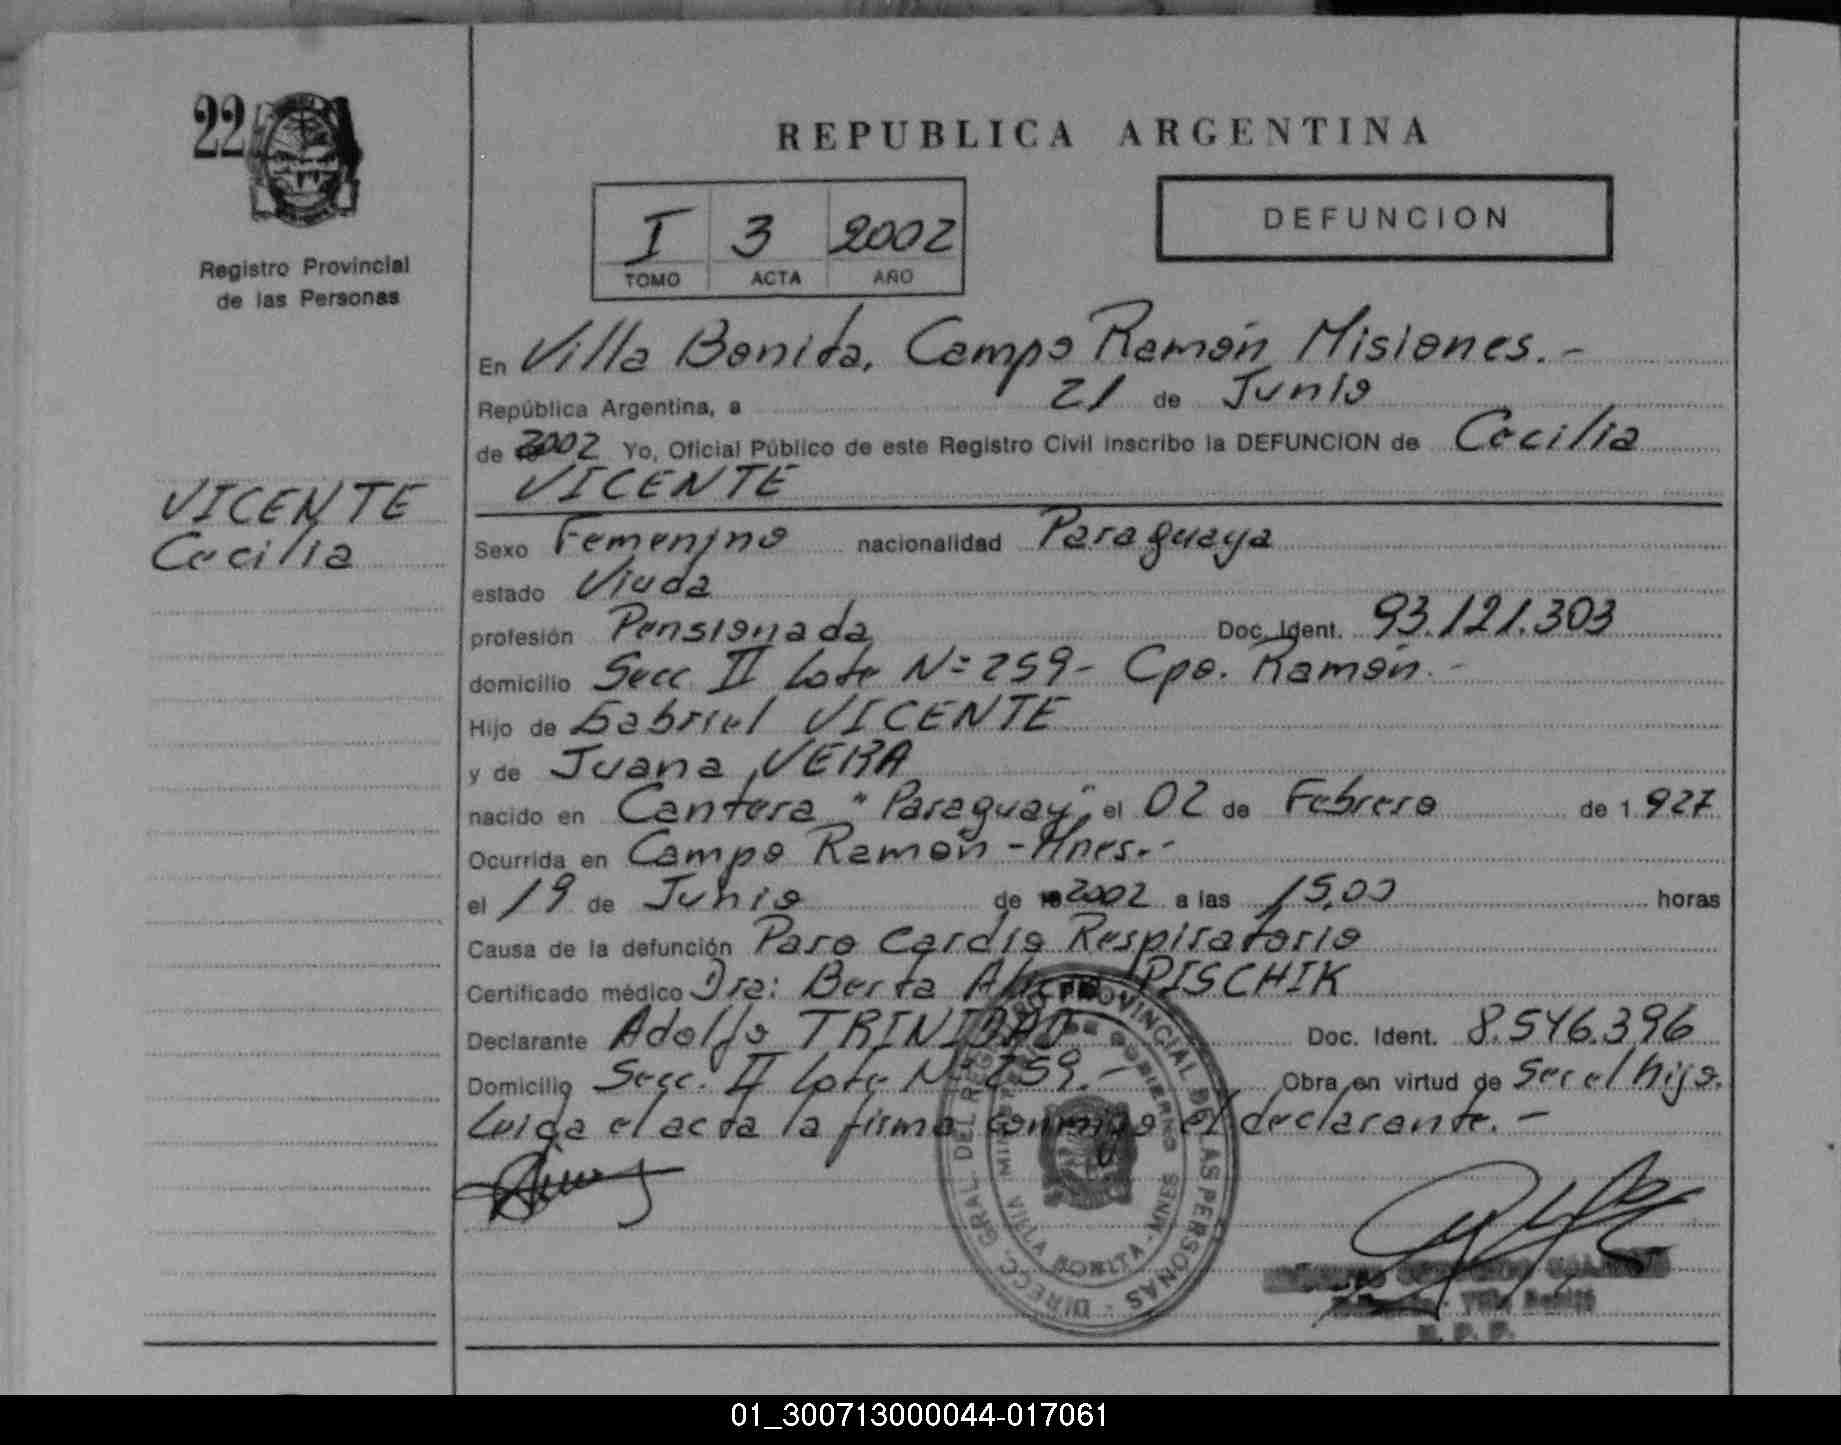 22
Registro Provincial
de las Personas
REPUBLICA ARGENTINA
I 3 2002
TOMO ACTA AÑO
DEFUNCION
VICENTE
Cecilia
En Villa Bonita, Campo Ramón Misiones.-
República Argentina, a 21 de Junio
de 2002 Yo, Oficial Público de este Registro Civil inscribo la DEFUNCION de Cecilia
VICENTE
Sexo Femenino nacionalidad Paraguaya
estado Viuda
profesión Pensionada Doc. Ident. 93.121.303
domicilio Secc. II Lote Nº 259- Cpo. Ramón.-
Hijo de Gabriel VICENTE
y de Juana VERA
nacido en Cantera "Paraguay" el 02 de Febrero de 1.927
Ocurrida en Campo Ramón - Mnes.-
el 19 de Junio de 2002 a las 15,00 horas
Causa de la defunción Paro Cardio Respiratorio
Certificado médico Dra: Berta Alicia PISCHIK
Declarante Adolfo TRINIDAD Doc. Ident. 8.546.396
Domicilio Secc. II Lote Nº 259.- Obra en virtud de Ser el hijo.
Leída el acta la firma conmigo el declarante.-
DIRECC. GRAL. DEL REGISTRO PROVINCIAL DE LAS PERSONAS
MINISTERIO DE GOBIERNO
VILLA BONITA - MNES
Villa Bonita
R. P. P.
01_300713000044-017061